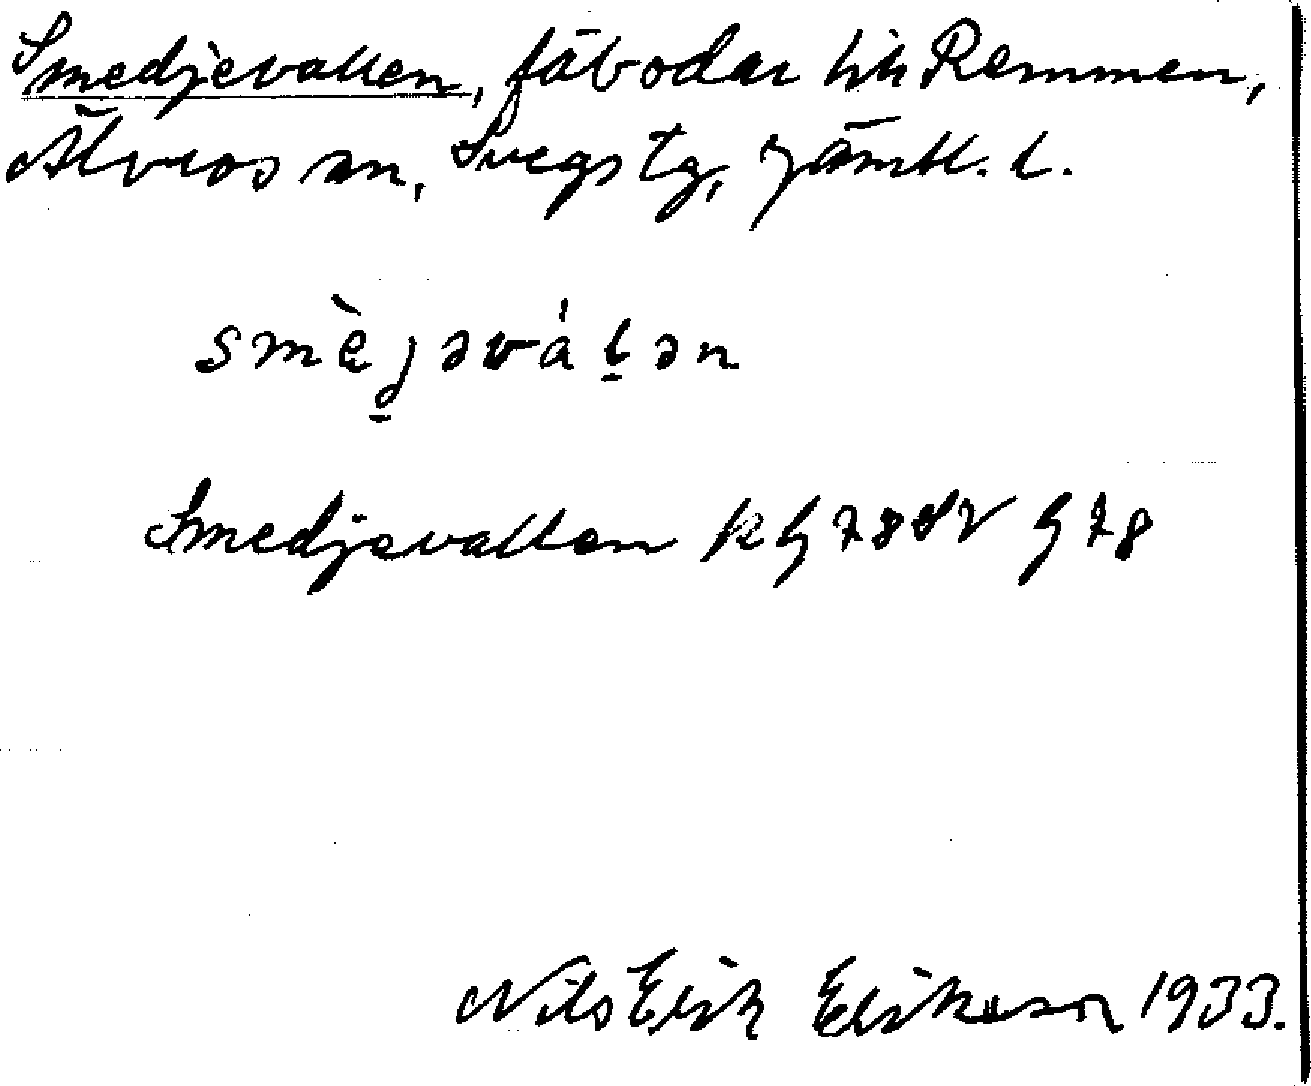 Smedjevallen, fäbodar till Remmen,
Älvros sn, Svegs tg, Jämtl. l.
smèjəváłən
Smedjevallen K G 78 SV G 78
Nils Erik Eriksson 1933.